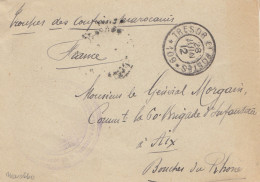 Troupes des Confins marocains
France
TRESOR ET POSTES * 601 *
Monsieur le Général Morgain,
Comm't la 60e Brigade d'Infanterie
à Aix
Bouches du Rhône